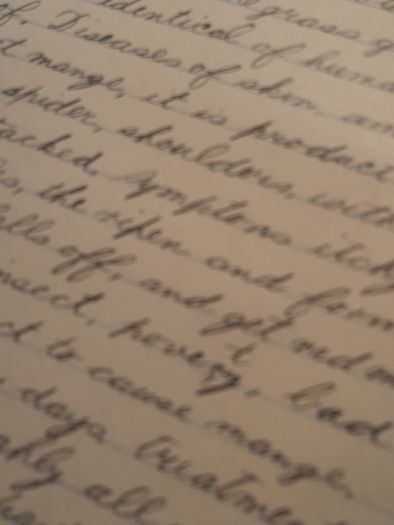 grass
identical of huma
of. Diseases of skin, an
t mange, it is product
spider, shoulders, with
tached. Symptoms itch
s, the ripen and form
alls off, and get red
nsect, poverty, bad
ct to cause mange,
days treatme
ghly all